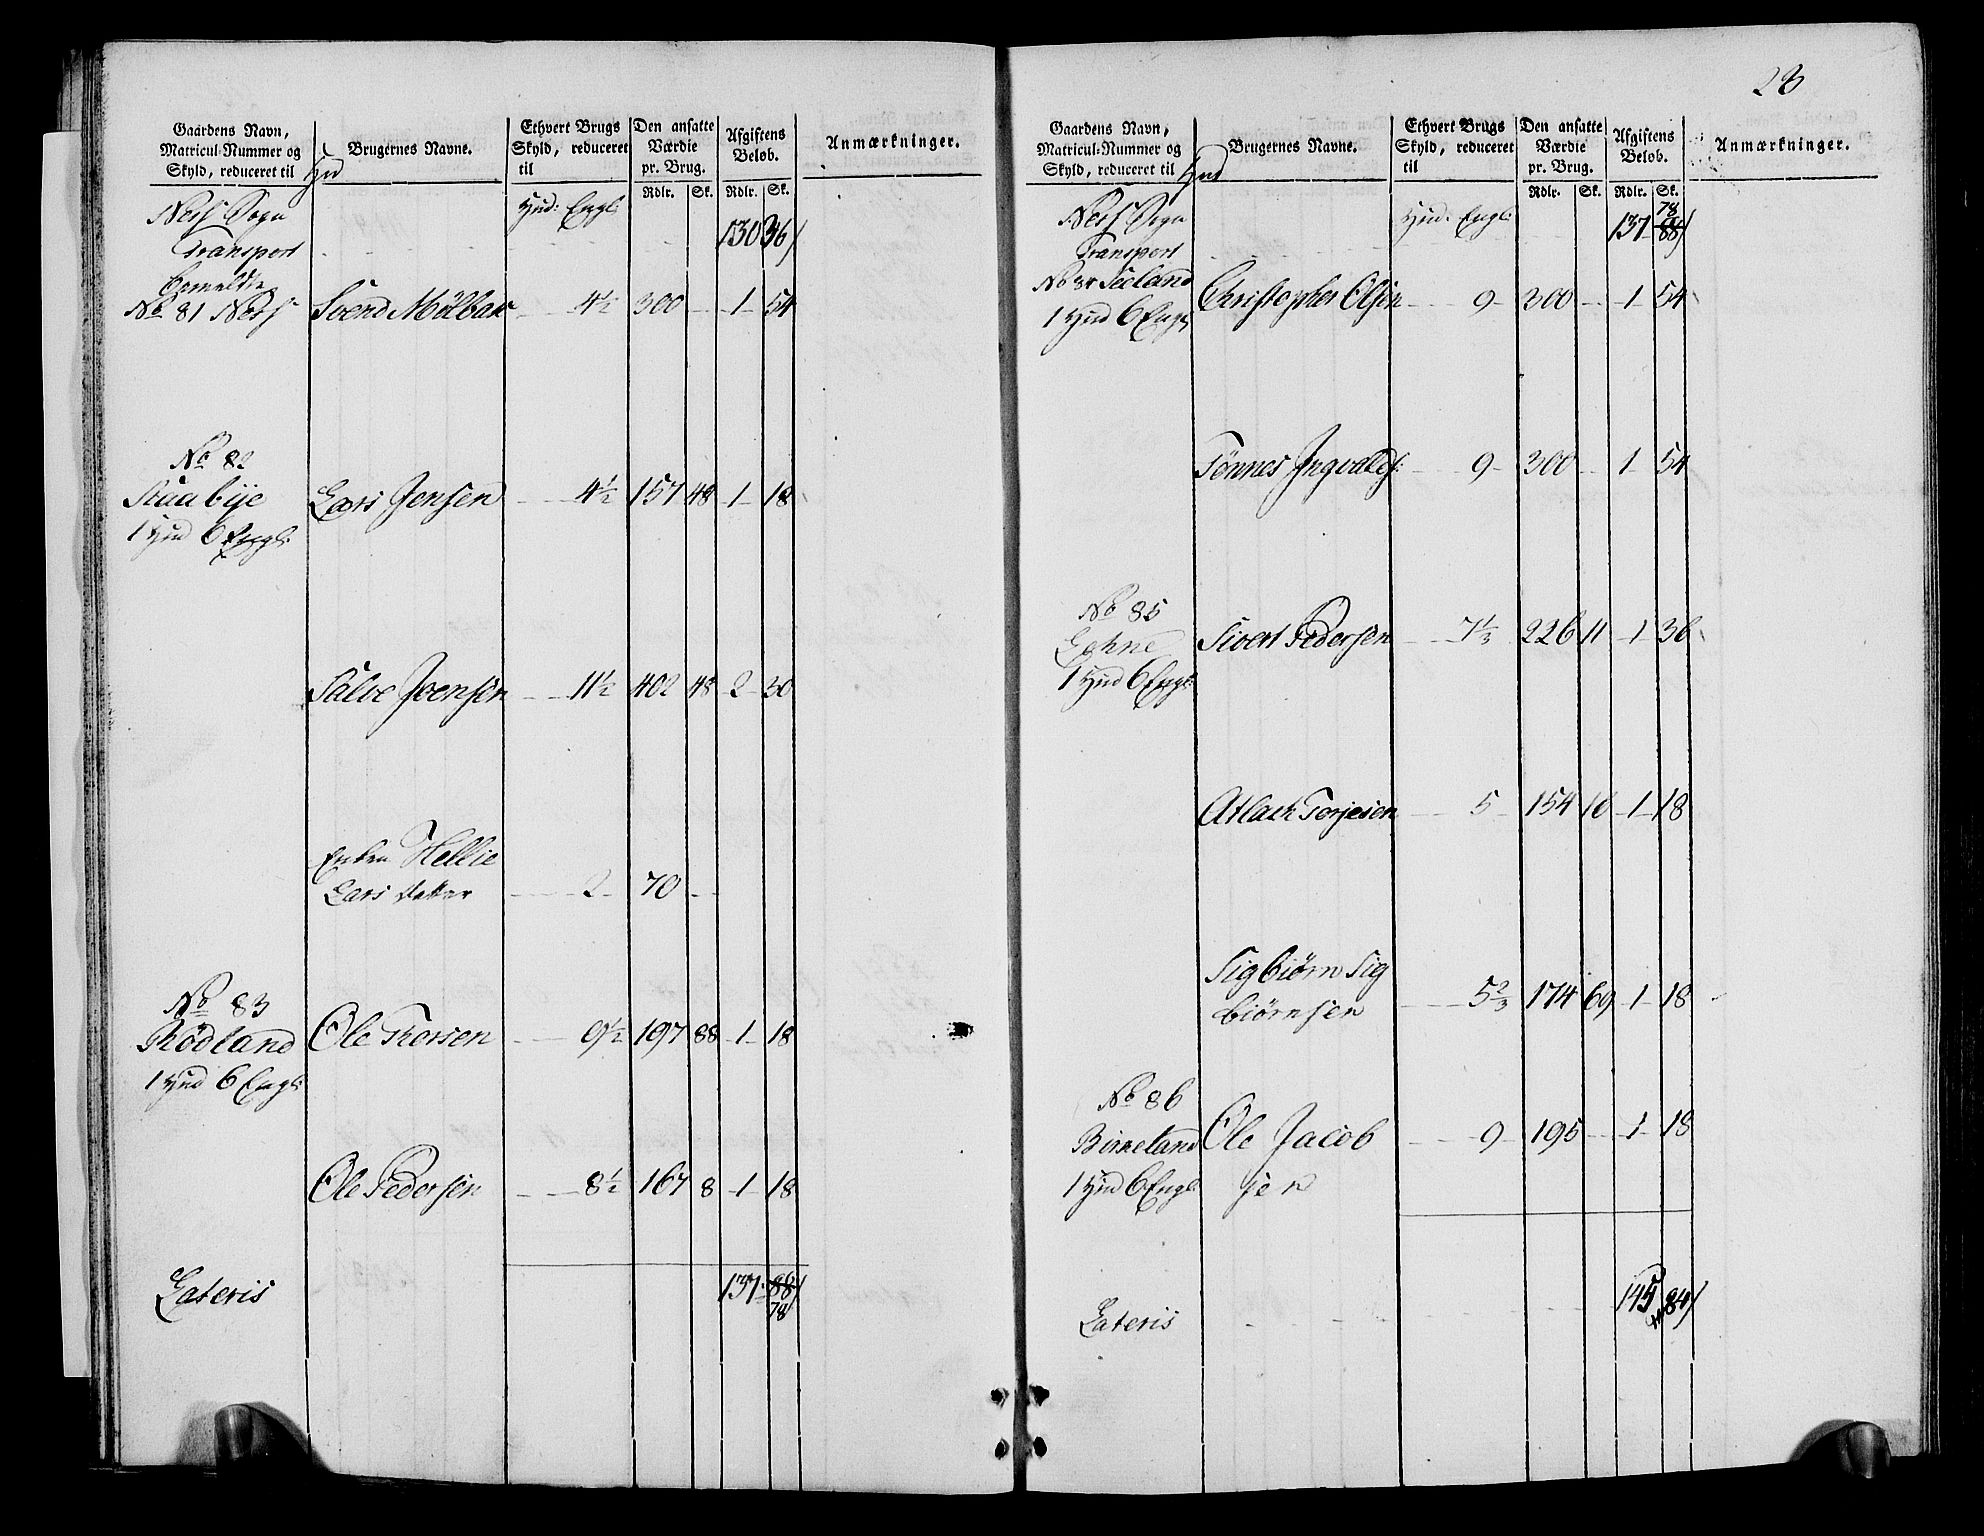 23
Gaardens Navn,
Matricul-Nummer og
Skyld, reduceret til Hud
Brugernes Navne.
Ethvert Brugs
Skyld, reduceret
til
Den ansatte
Værdie
pr. Brug.
Afgiftens
Beløb.
Anmærkninger.
Rdlr. Sk. Rdlr. Sk.
Ness Sogn Hud: Engl:
Transport 130 36
No 81 Ness Svend Mölbak 4½ 300 - 1 54
No 82
Staabÿe Lars Jensen 4½ 157 48 1 18
1 Hud 6 Engl:
Salve Joensen 11½ 402 48 2 30
Enken Hellie
Lars Datter 2 70 -
No 83
Rødland Ole Thorsen 9½ 197 88 1 18
1 Hud 6 Engl:
Ole Pedersen 8½ 167 8 1 18
Lateris 137 88
78
Gaardens Navn,
Matricul-Nummer og
Skyld, reduceret til Hud
Brugernes Navne.
Ethvert Brugs
Skyld, reduceret
til
Den ansatte
Værdie
pr. Brug.
Afgiftens
Beløb.
Anmærkninger.
Rdlr. Sk. Rdlr. Sk.
78
Ness Sogn Hud: Engl: 137 88
Transport
No 84 Seeland Christopher Olsen 9 300 - 1 54
1 Hud 6 Engl:
Tönnes Ingvalds: 9 300 - 1 54
No 85
Sivert Pedersen 7⅓ 226 11 1 36
1 Hud 6 Engl:
Atlach Torjesen 5 154 16 1 18
Sigbiørn Sig
biørnsen 5⅔ 174 69 1 18
No 86
Birkeland Ole Jacob 9 195 - 1 18
1 Hud 6 Engl: sen
Lateris 145 84